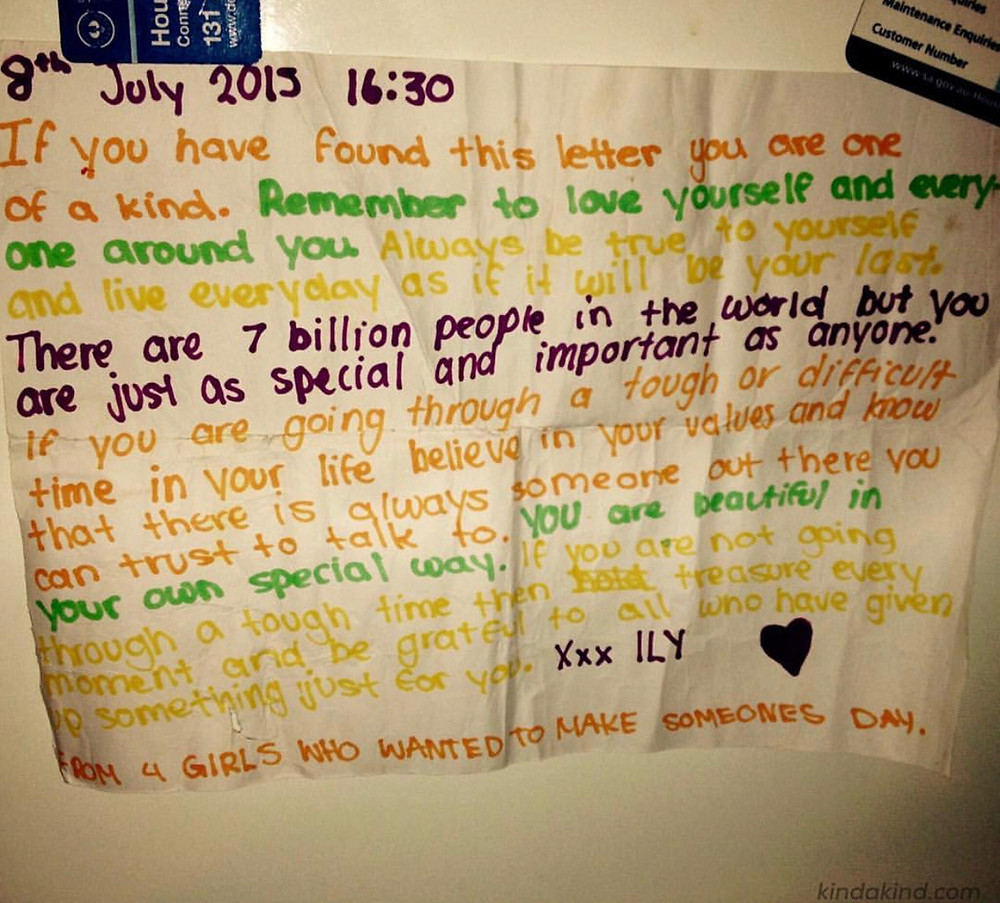 Hou
Conn
131
www.de
quiries
Maintenance Enquiries
Customer Number
www.sa.gov.au/hous
8th July 2015 16:30
If you have found this letter you are one
of a kind. Remember to love yourself and every-
one around you. Always be true to yourself
and live everyday as if it will be your last.
There are 7 billion people in the world but you
are just as special and important as anyone.
If you are going through a tough or difficult
time in your life believe in your values and know
that there is always someone out there you
can trust to talk to. you are beautiful in
your own special way. If you are not going
through a tough time then treasure every
moment and be grateful to all who have given
up something just for you. Xxx ILY
FROM 4 GIRLS WHO WANTED TO MAKE SOMEONES DAY.
kindakind.com